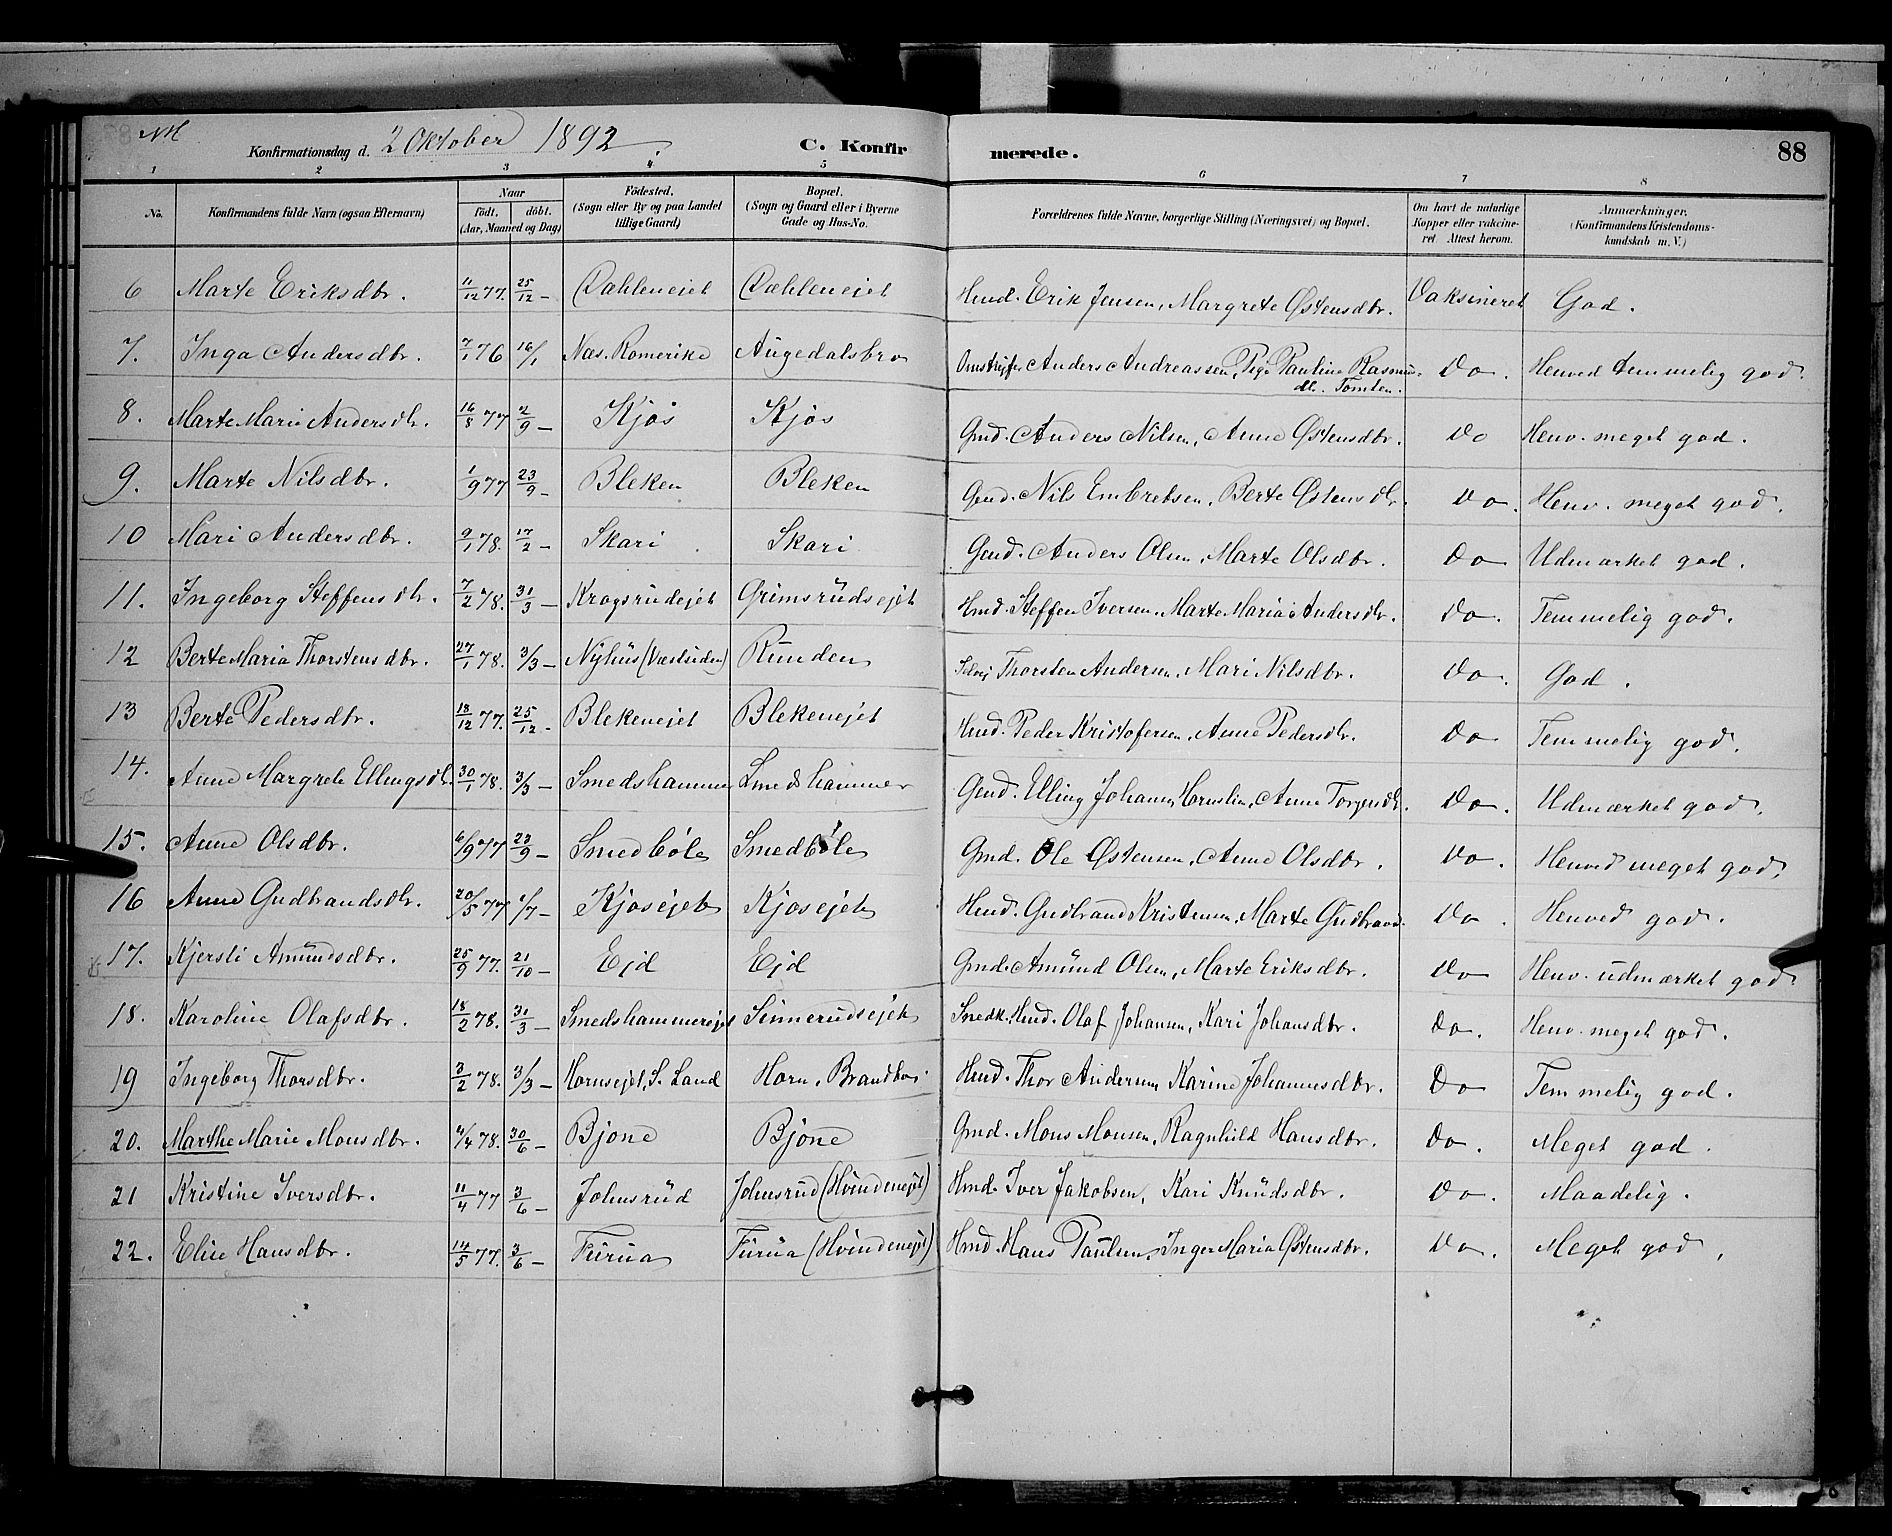 Konfirmationsdag d. 2 Oktober 1892. C. Konfirmerede. 88
1 2 3 4 5 6 7 8
No. Konfirmandens fulde Navn (ogsaa Efternavn) Naar födt. döbt. (Aar, Maaned og Dag) Födested. (Sogn eller By og paa Landet tillige Gaard) Bopæl. (Sogn og Gaard eller i Byerne Gade og Hus-No. Forældrenes fulde Navne, borgerlige Stilling (Næringsvei) og Bopæl. Om havt de naturlige Kopper eller vakcineret. Attest herom. Anmærkninger. (Konfirmandens Kristendomskundskab m. V.)
6 Marte Eriksdtr. 11/12 77. 25/12 – Dæhlenejet Dæhlenejet Hmd. Erik Jensen, Margrete Østensdtr. Vaksineret God.
7. Inga Andersdtr. 7/1 76 16/1 Næs. Romerike Augedalsbro Anders Andreassen, Pige Pauline Rasmusdtr. Tomten. Do. Henved temmelig god.
8. Marte Marie Andersdtr. 16/8 77 2/9 – Kjøs Kjøs Gmd. Anders Nilsen, Anne Østensdtr. Do Henv. meget god.
9. Marte Nilsdtr. 1/9 77 23/9 – Bleken Bleken Gmd. Nils Embretsen, Berte Østensdtr. Do. Henv. meget god.
10 Mari Andersdtr. 9/1 78. 17/2 – Skari Skari Gmd. Anders Olsen, Marte Olsdtr. Do Udmærket god.
11. Ingeborg Steffensdtr. 7/2 78. 31/3 – Kragsrudejet Grimsrudsejet Hmd. Steffen Iversen, Marte Maria Andersdtr. Do. Temmelig god.
12 Berte Maria Thorstensdtr. 27/1 78. 3/3 – Nyhus (Væstsiden) Runden Selvej Thorsten Andersen, Mari Nilsdtr. Do. God.
13 Berte Pedersdtr. 18/12 77. 25/12 – Blekenejet Blekenejet Hmd. Peder Kristofersen, Anne Pedersdtr. Do Temmelig god.
14. Anne Margrete Ellingsdtr. 30/1 78. 3/3 – Smedshammer Smedshammer Gmd. Elling Johansen Hornslien, Anne Torgersdtr. Do. Udmærket god.
15. Anne Olsdtr. 6/9 77 23/9 – Smedbøle Smedbøle Gmd. Ole Østensen, Anne Olsdtr. Do. Henved meget god.
16 Anne Gudbrandsdtr. 20/5 77 1/7 – Kjøsejet Kjøsejet Hmd. Gudbrand Kristensen, Marte Gudbrand. Do Henved god.
17. Kjersti Amundsdtr. 25/9 77. 21/10 – Ejd Ejd Gmd. Amund Olsen, Marte Eriksdtr. Do Henv. udmærket god
18. Karoline Olafsdtr. 18/2 78. 31/3 – Smedshammerejet Sinnerudsejet Snedk. Hmd. Olaf Johansen, Kari Johansdtr. Do. Henv. meget god.
19 Ingeborg Thorsdtr. 3/2 78. 3/3 – Hornsejet, S. Land Horn, Brandbu. Hmd. Thor Andersen, Karine Johannesdtr. Do Temmelig god.
20. Marthe Marie Monsdtr. 4/4 78. 30/6 – Bjone Bjone Gmd. Mons Monsen, Ragnhild Hansdtr. Do. Meget god.
21 Kristine Iversdtr. 11/4 77 3/6 – Johnsrud Johnsrud (Hvindenejet) Hmd. Iver Jakobsen, Kari Knudsdtr. Do. Maadelig.
22. Elise Hansdtr. 14/5 77. 3/6 – Furua Furua (Hvindenejet) Hmd. Hans Paulsen, Inger Maria Østensdtr. Do. Meget god.